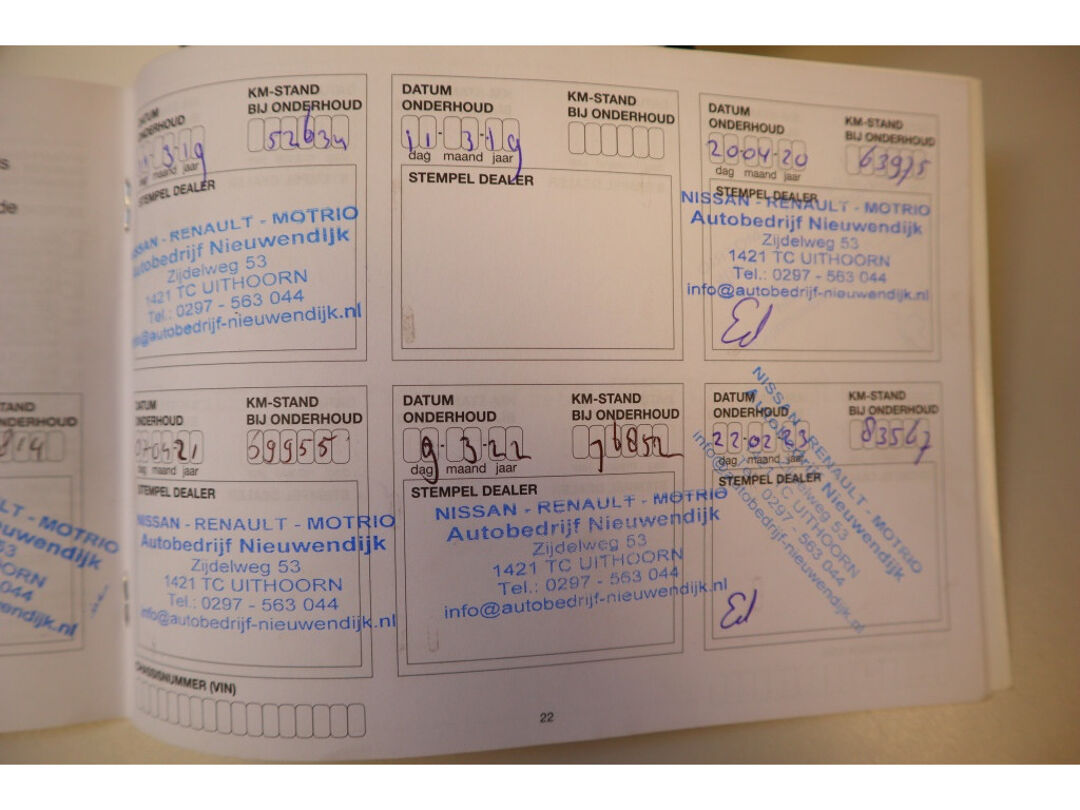 DATUM
ONDERHOUD
KM-STAND
BIJ ONDERHOUD
11-3-19
52634
dag maand jaar
STEMPEL DEALER
NISSAN - RENAULT - MOTRIO
Autobedrijf Nieuwendijk
Zijdelweg 53
1421 TC UITHOORN
Tel.: 0297 - 563 044
info@autobedrijf-nieuwendijk.nl
DATUM
ONDERHOUD
KM-STAND
BIJ ONDERHOUD
11-3-19
dag maand jaar
STEMPEL DEALER
DATUM
ONDERHOUD
KM-STAND
BIJ ONDERHOUD
20-04-20
63975
dag maand jaar
STEMPEL DEALER
NISSAN - RENAULT - MOTRIO
Autobedrijf Nieuwendijk
Zijdelweg 53
1421 TC UITHOORN
Tel.: 0297 - 563 044
info@autobedrijf-nieuwendijk.nl
Ed
DATUM
ONDERHOUD
KM-STAND
BIJ ONDERHOUD
07-04-21
69955
dag maand jaar
STEMPEL DEALER
NISSAN - RENAULT - MOTRIO
Autobedrijf Nieuwendijk
Zijdelweg 53
1421 TC UITHOORN
Tel.: 0297 - 563 044
info@autobedrijf-nieuwendijk.nl
DATUM
ONDERHOUD
KM-STAND
BIJ ONDERHOUD
9-3-22
76852
dag maand jaar
STEMPEL DEALER
NISSAN - RENAULT - MOTRIO
Autobedrijf Nieuwendijk
Zijdelweg 53
1421 TC UITHOORN
Tel.: 0297 - 563 044
info@autobedrijf-nieuwendijk.nl
DATUM
ONDERHOUD
KM-STAND
BIJ ONDERHOUD
22-02-23
83567
dag maand jaar
STEMPEL DEALER
NISSAN - RENAULT - MOTRIO
Autobedrijf Nieuwendijk
Zijdelweg 53
1421 TC UITHOORN
Tel.: 0297 - 563 044
info@autobedrijf-nieuwendijk.nl
Ed
CHASSISNUMMER (VIN)
22